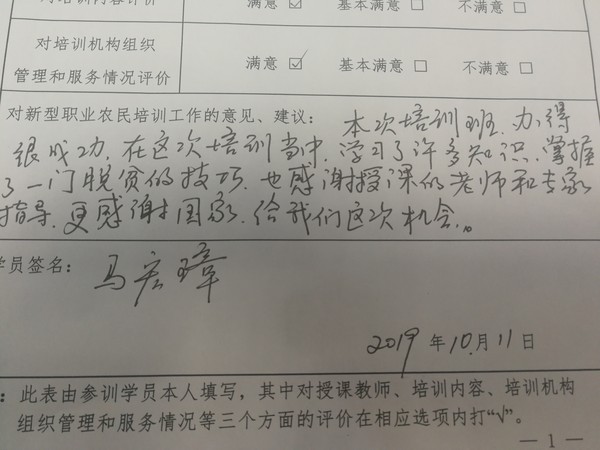 对培训内容评价 满意 ☑ 基本满意 □ 不满意 □
对培训机构组织
管理和服务情况评价 满意 ☑ 基本满意 □ 不满意 □
对新型职业农民培训工作的意见、建议: 本次培训班,办得
很成功,在这次培训当中,学习了许多知识,掌握
了一门脱贫的技巧,也感谢授课的老师和专家
指导,更感谢国家,给我们这次机会。
学员签名: 马宏璋
2019 年 10 月 11 日
:此表由参训学员本人填写,其中对授课教师、培训内容、培训机构
组织管理和服务情况等三个方面的评价在相应选项内打“√”。
— 1 —